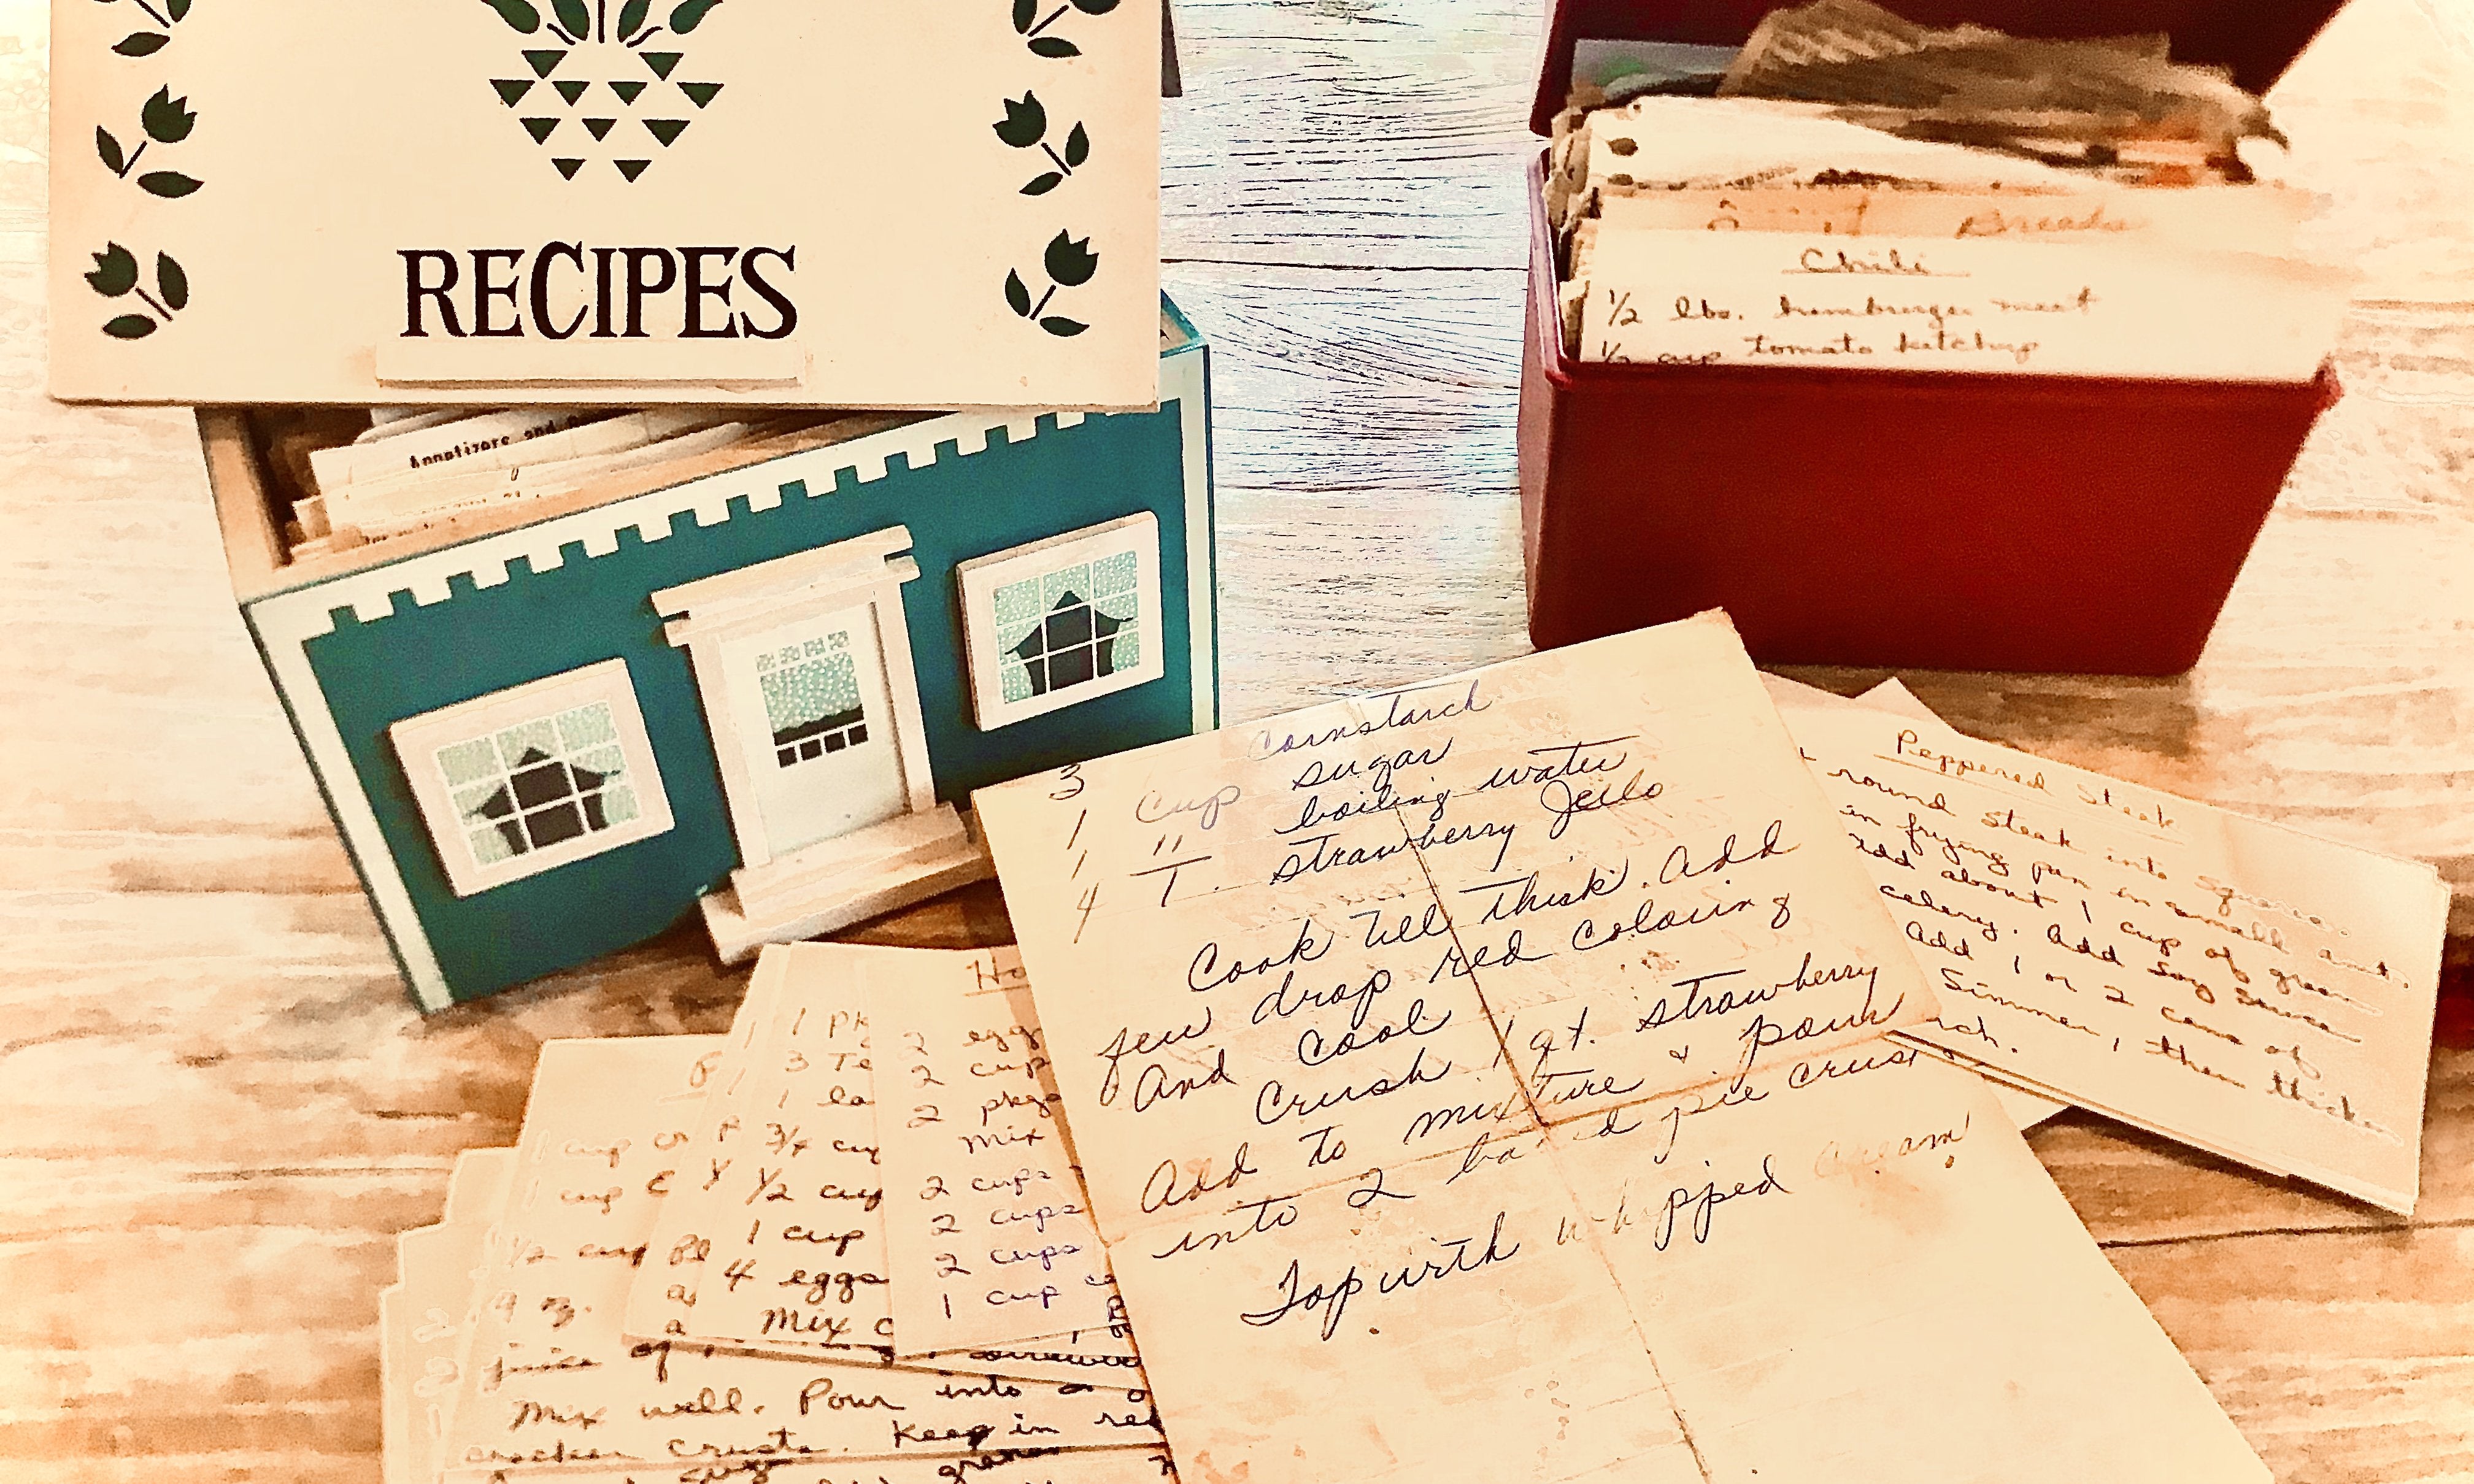 RECIPES
Appetizers and
Breads
Chili
1/2 lbs. humburger meat
1/2 cup tomato ketchup
3 cornstarch
1 cup sugar
1 " boiling water
4 T. strawberry Jello
Cook till thick. Add
few drop red coloring
And cool
Crush 1 qt. strawberry
Add to mixture & pour
into 2 baked pie crust
Top with whipped cream
Peppered Steak
round steak into squares.
in frying pan in small amt.
Add about 1 cup of green
celery. Add Soy Sauce
Add 1 or 2 cans of
Simmer, then thicken
1 pk
3 Te
1 la
3/4 cup
1/2 cup
1 cup
4 eggs
Mix
2 eggs
2 cup
2 pkgs
Mix
2 cups
2 cups
2 cups
1 cup
1 cup
cup
1/2 cup
9 oz.
juice of
Mix well. Pour into
cracker crusts. Keep in